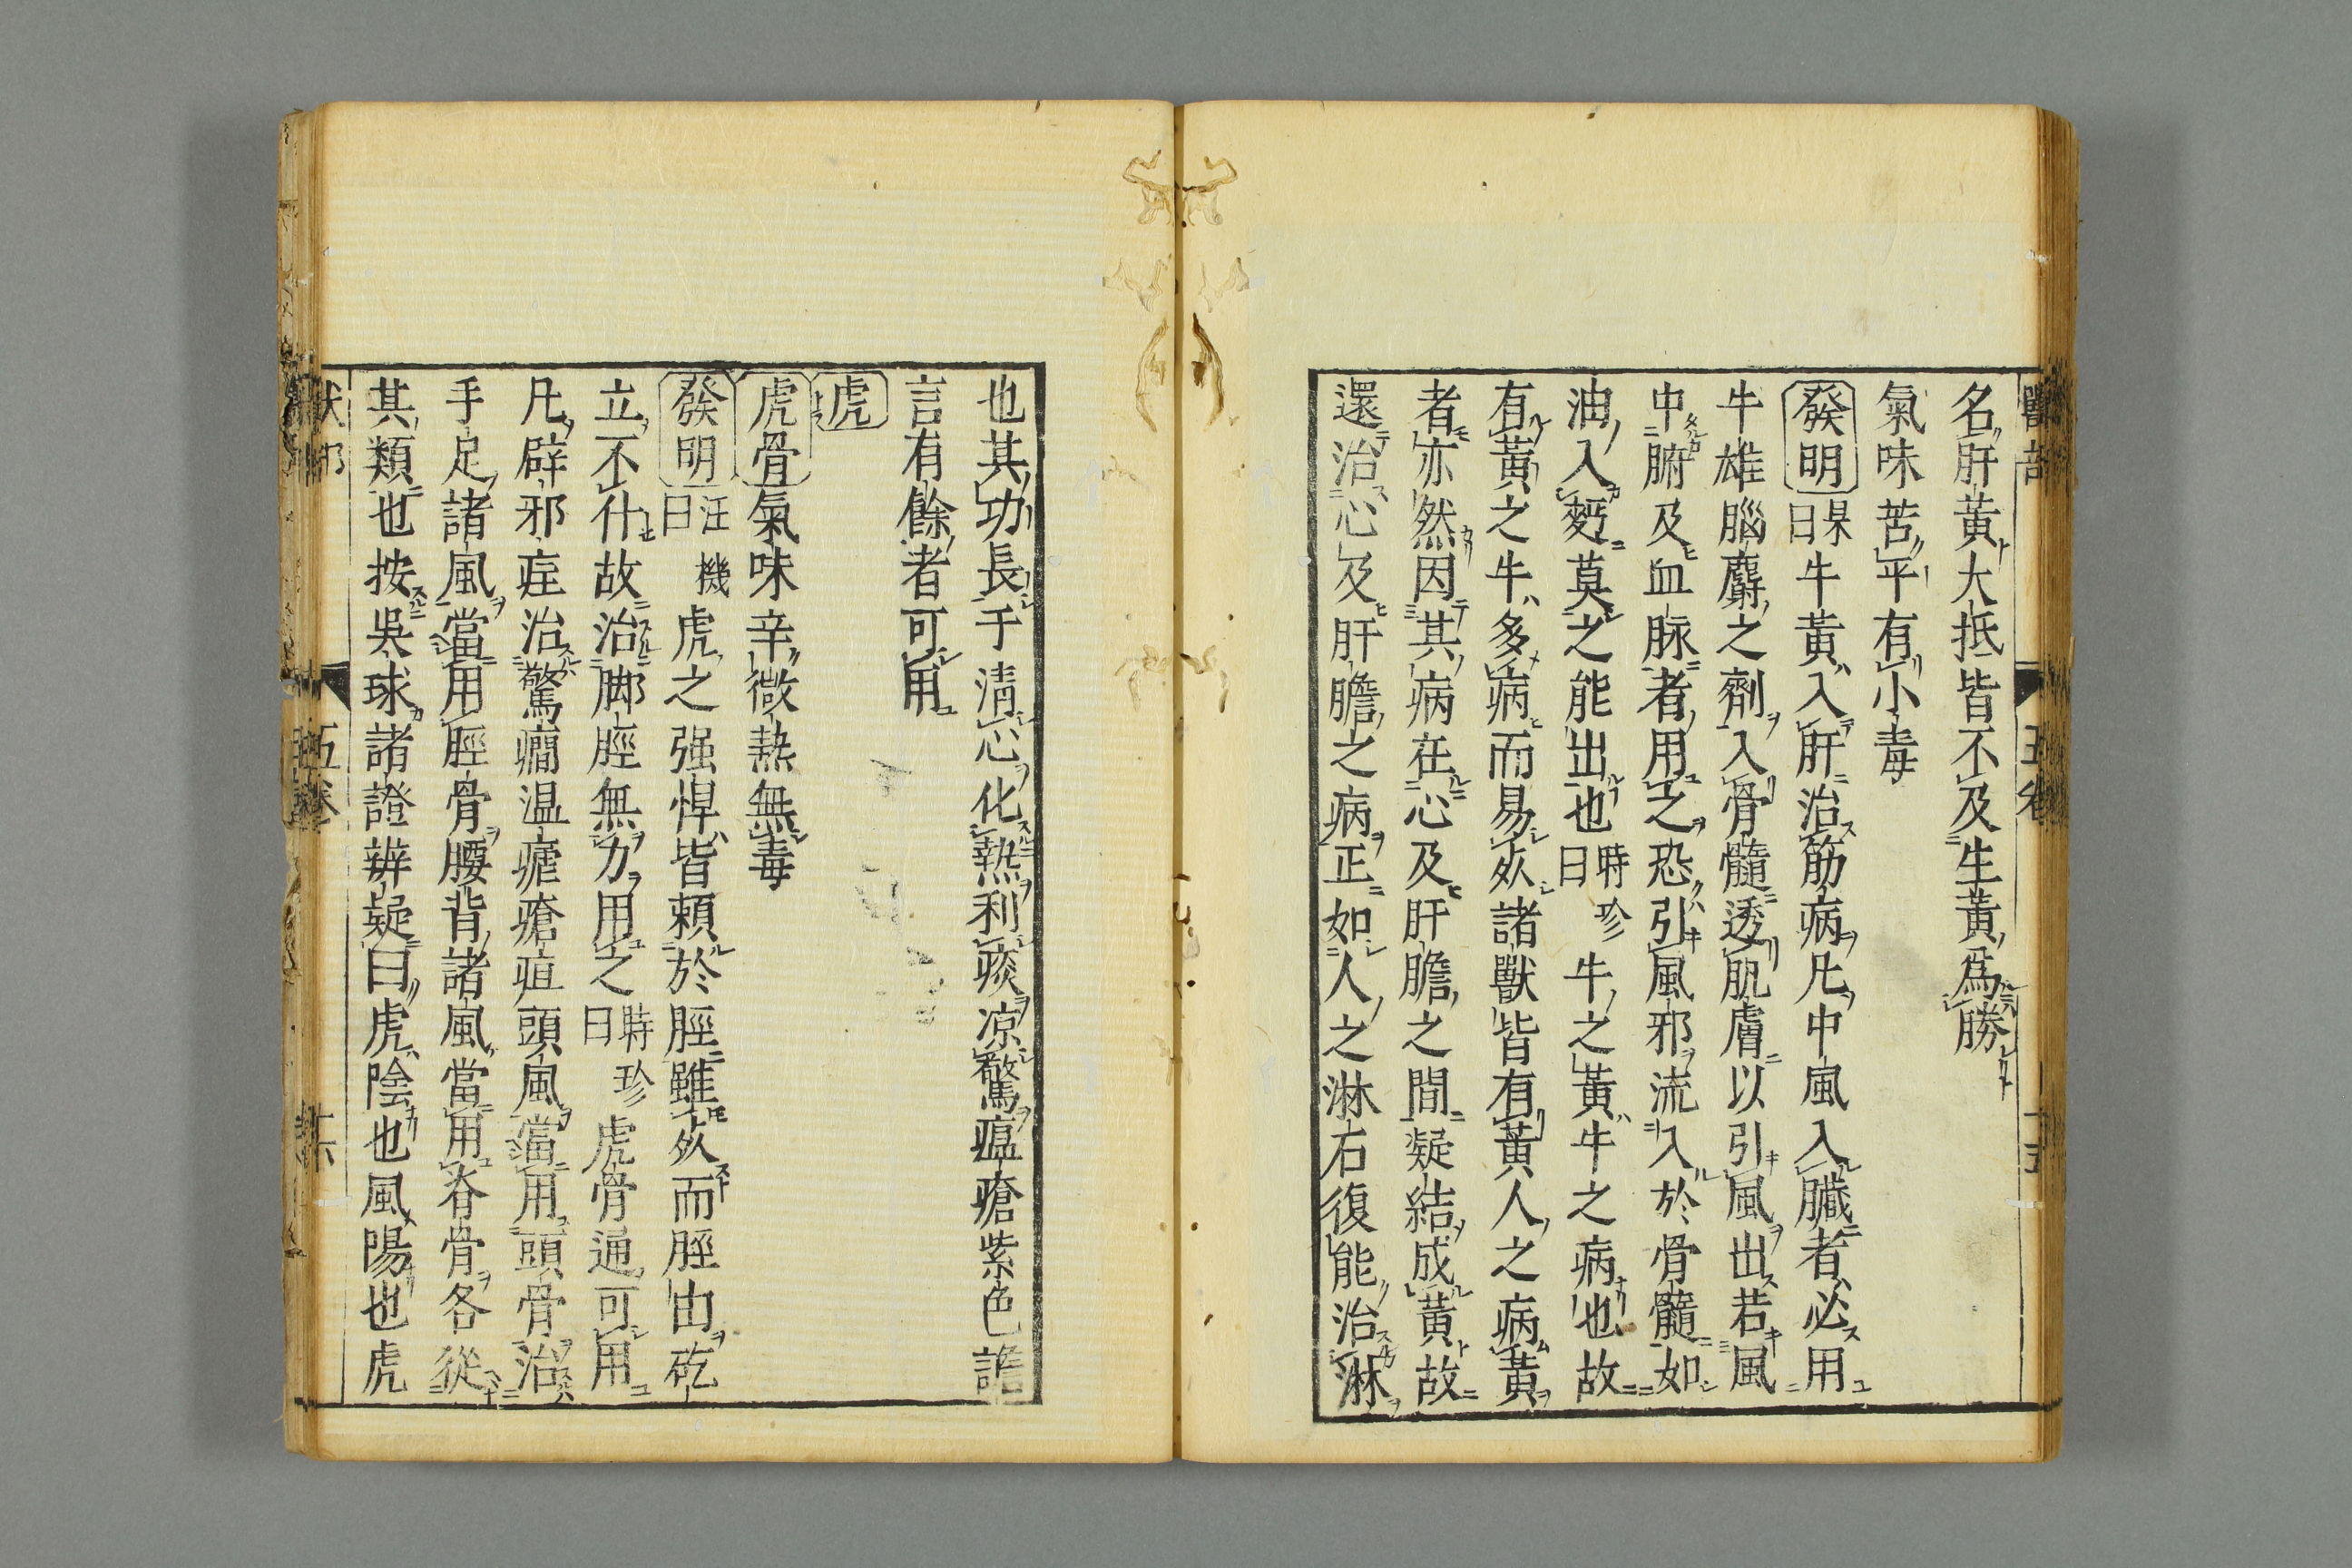 獸部 五卷 十五
名肝黃大抵皆不及生黃爲勝
氣味苦平有小毒
發明杲曰牛黃入肝治筋病凡中風入臟者必用
牛雄腦麝之劑入骨髓透肌膚以引風出若風
中腑及血脉者用之恐引風邪流入於骨髓如
油入麪莫之能出也時珍曰牛之黃牛之病也故
有黃之牛多病而易死諸獸皆有黃人之病黃
者亦然因其病在心及肝膽之間凝結成黃故
還治心及肝膽之病正如人之淋石復能治淋
也其功長于淸心化熱利痰凉驚瘟瘡紫色譫
言有餘者可用
虎
虎骨氣味辛微熱無毒
發明汪機曰虎之强悍皆賴於脛雖死而脛由矻
立不仆故治脚脛無力用之時珍曰虎骨通可用
凡辟邪疰治驚癇温瘧瘡疽頭風當用頭骨治
手足諸風當用脛骨腰背諸風當用脊骨各從
其類也按吳球諸證辨疑曰虎陰也風陽也虎
獸部 五卷 十六